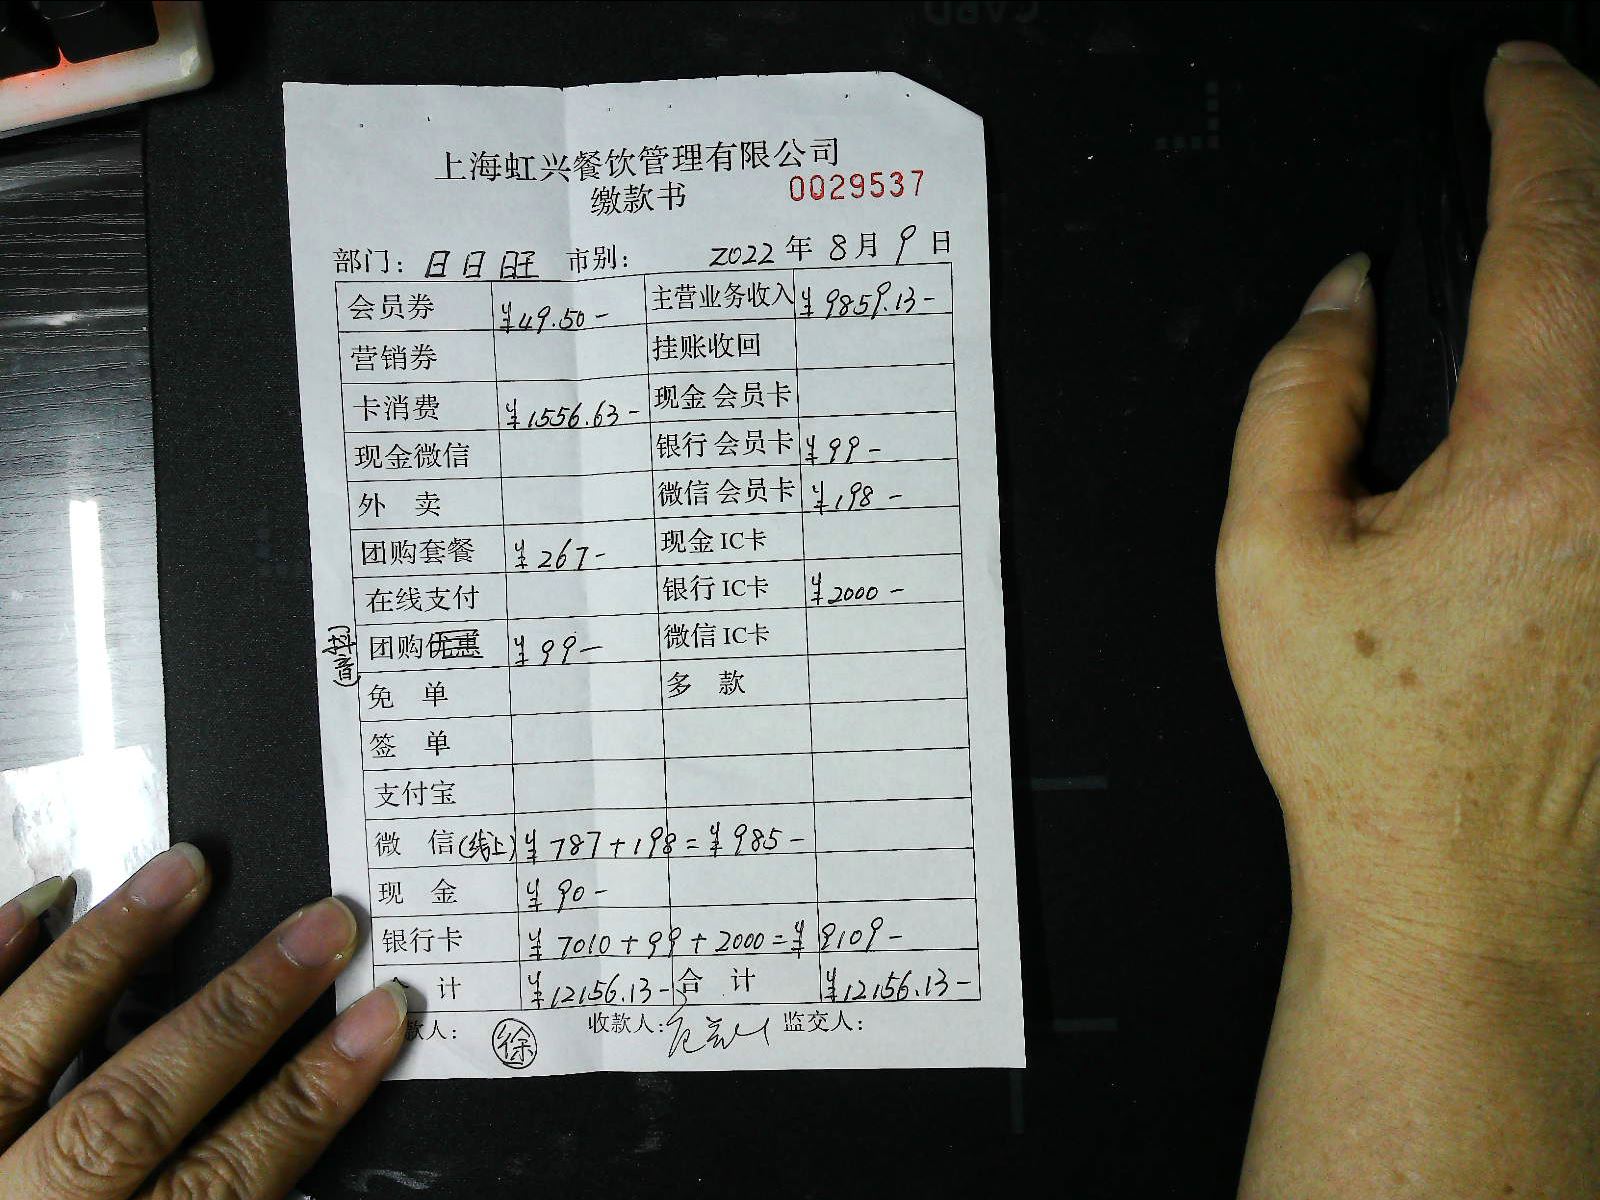 上海虹兴餐饮管理有限公司
缴款书 0029537
部门: 日日旺 市别: 2022 年 8 月 9 日
会员券 ¥49.50- 主营业务收入 ¥9859.13-
营销券 挂账收回
卡消费 ¥1556.63- 现金 会员卡
现金微信 银行 会员卡 ¥99-
外 卖 微信 会员卡 ¥198-
团购套餐 ¥267- 现金 IC卡
在线支付 银行 IC卡 ¥2000-
团购优惠 ¥99- 微信 IC卡
免 单 多 款
签 单
支付宝
微 信(线上) ¥787+198=¥985-
现 金 ¥90-
银行卡 ¥7010+99+2000=¥9109-
计 ¥12156.13- 合 计 ¥12156.13-
款人: 徐 收款人: 监交人: